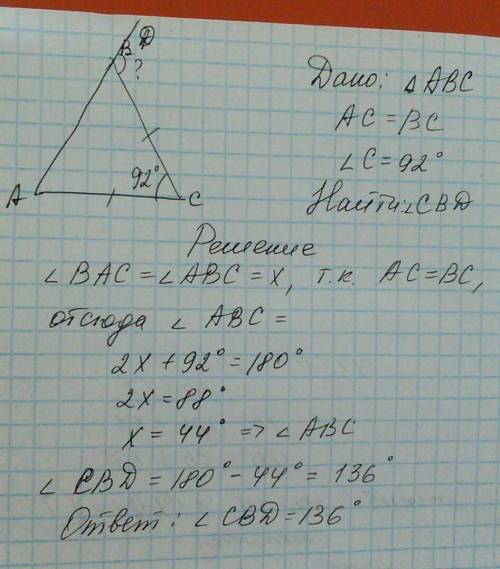 B D
?
92°
A
C
Дано: △ABC
AC = BC
∠C = 92°
Найти: ∠CBD
Решение
∠BAC = ∠ABC = x, т.к. AC = BC,
отсюда ∠ABC =
2x + 92° = 180°
2x = 88°
x = 44° => ∠ABC
∠CBD = 180° - 44° = 136°
Ответ: ∠CBD = 136°